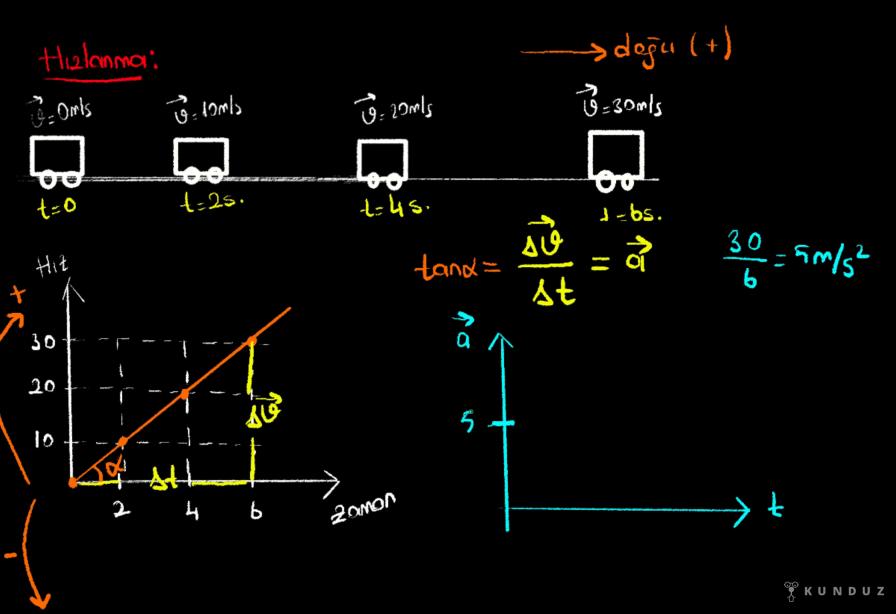 Hızlanma:
→ doğu (+)
v⃗=0m/s v⃗=10m/s v⃗=20m/s v⃗=30m/s
t=0 t=2s. t=4s. t=6s.
Hız
+
30
20
10
α
Δt
Δv⃗
2 4 6
Zaman
-
tanα = Δv⃗/Δt = a⃗
30/6 = 5m/s²
a⃗
5
t
KUNDUZ